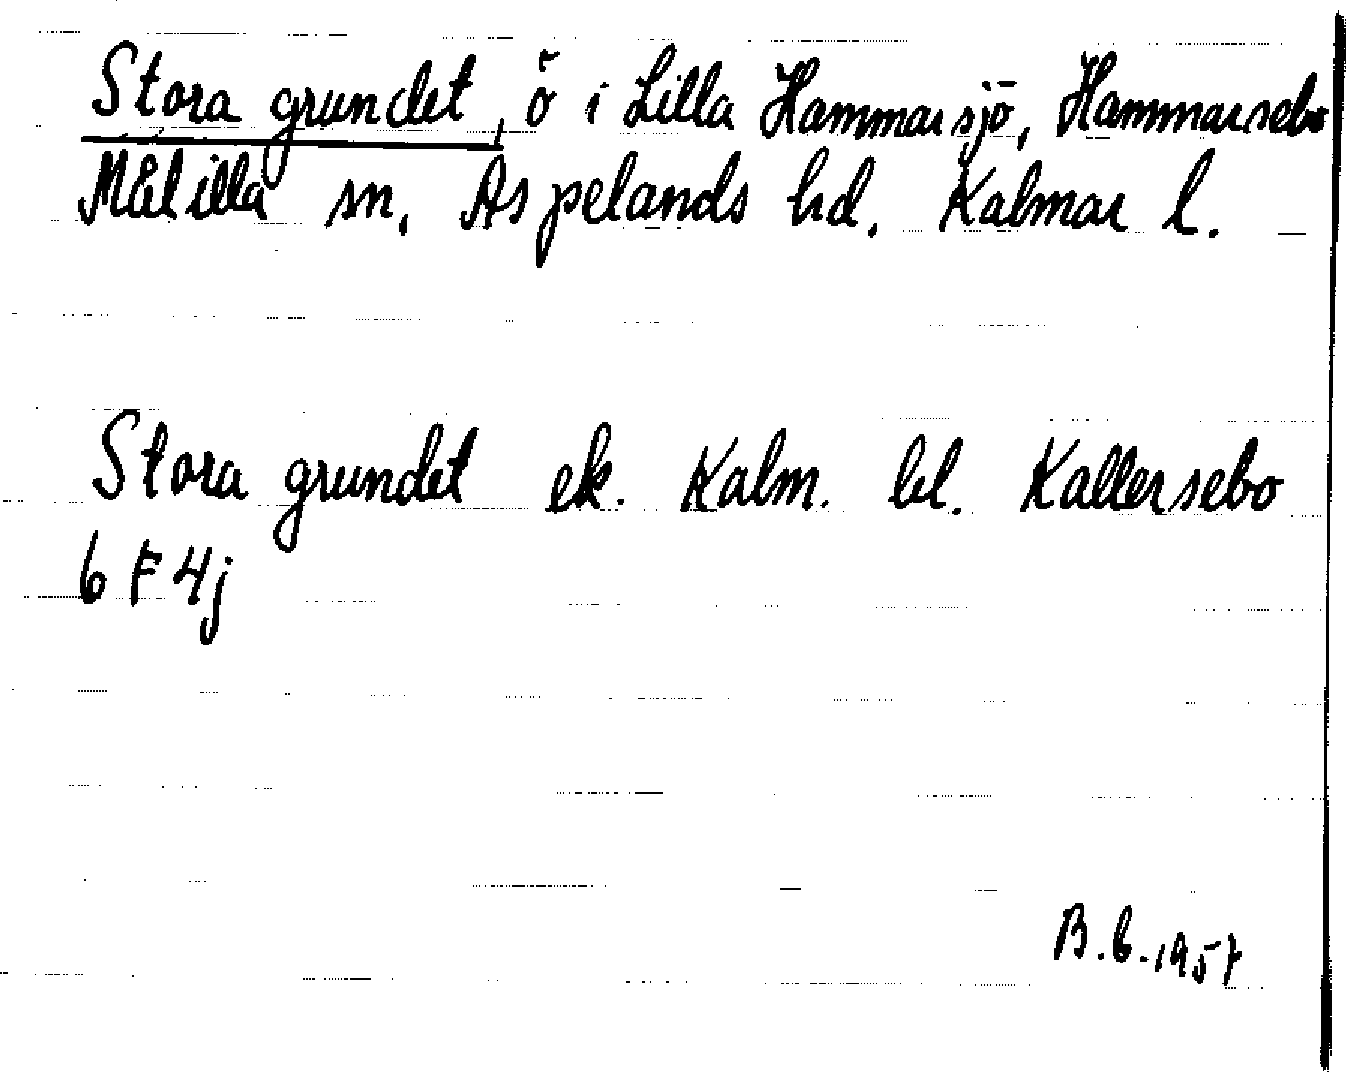 Stora grundet, ö i Lilla Hammarsjö, Hammarsebo
Målilla sn. Aspelands hd. Kalmar l.
Stora grundet ek. Kalm. bl. Kallersebo
6 F 4j
B.6.1957